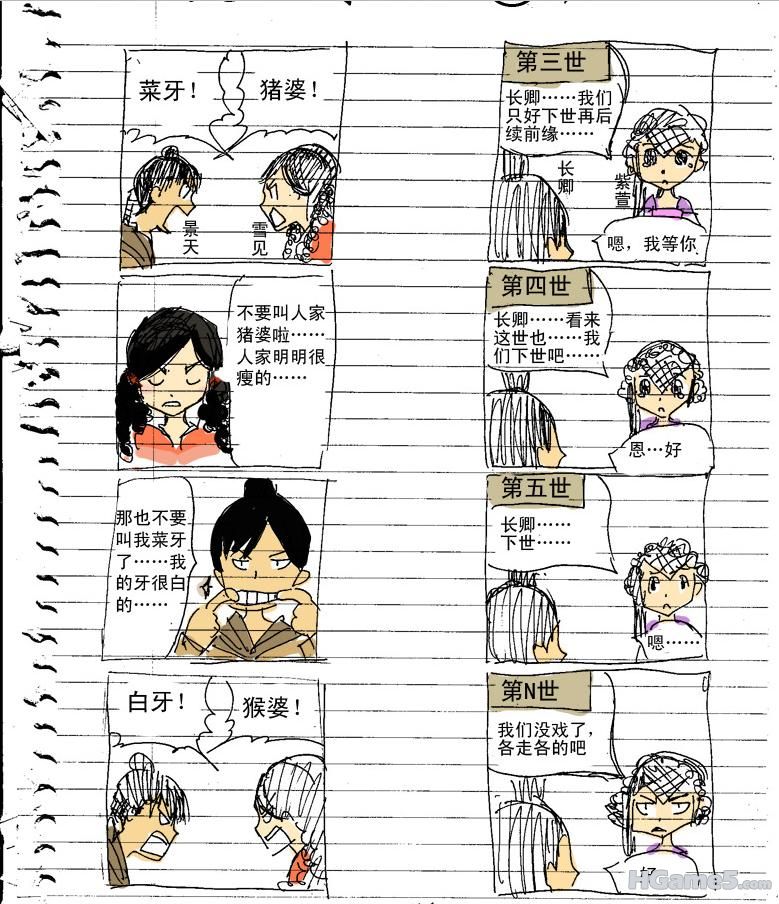 菜牙！
猪婆！
景天
雪见
不要叫人家
猪婆啦……
人家明明很
瘦的……
那也不要
叫我菜牙
了……我
的牙很白
的……
白牙！
猴婆！
第三世
长卿……我们
只好下世再后
续前缘……
长卿
紫萱
嗯，我等你
第四世
长卿……看来
这世也……我
们下世吧……
恩…好
第五世
长卿……
下世…
嗯……
第N世
我们没戏了，
各走各的吧
好
HGame5.com